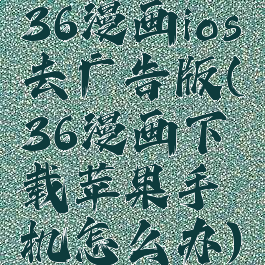 36漫画ios
去广告版(
36漫画下
载苹果手
机怎么办)